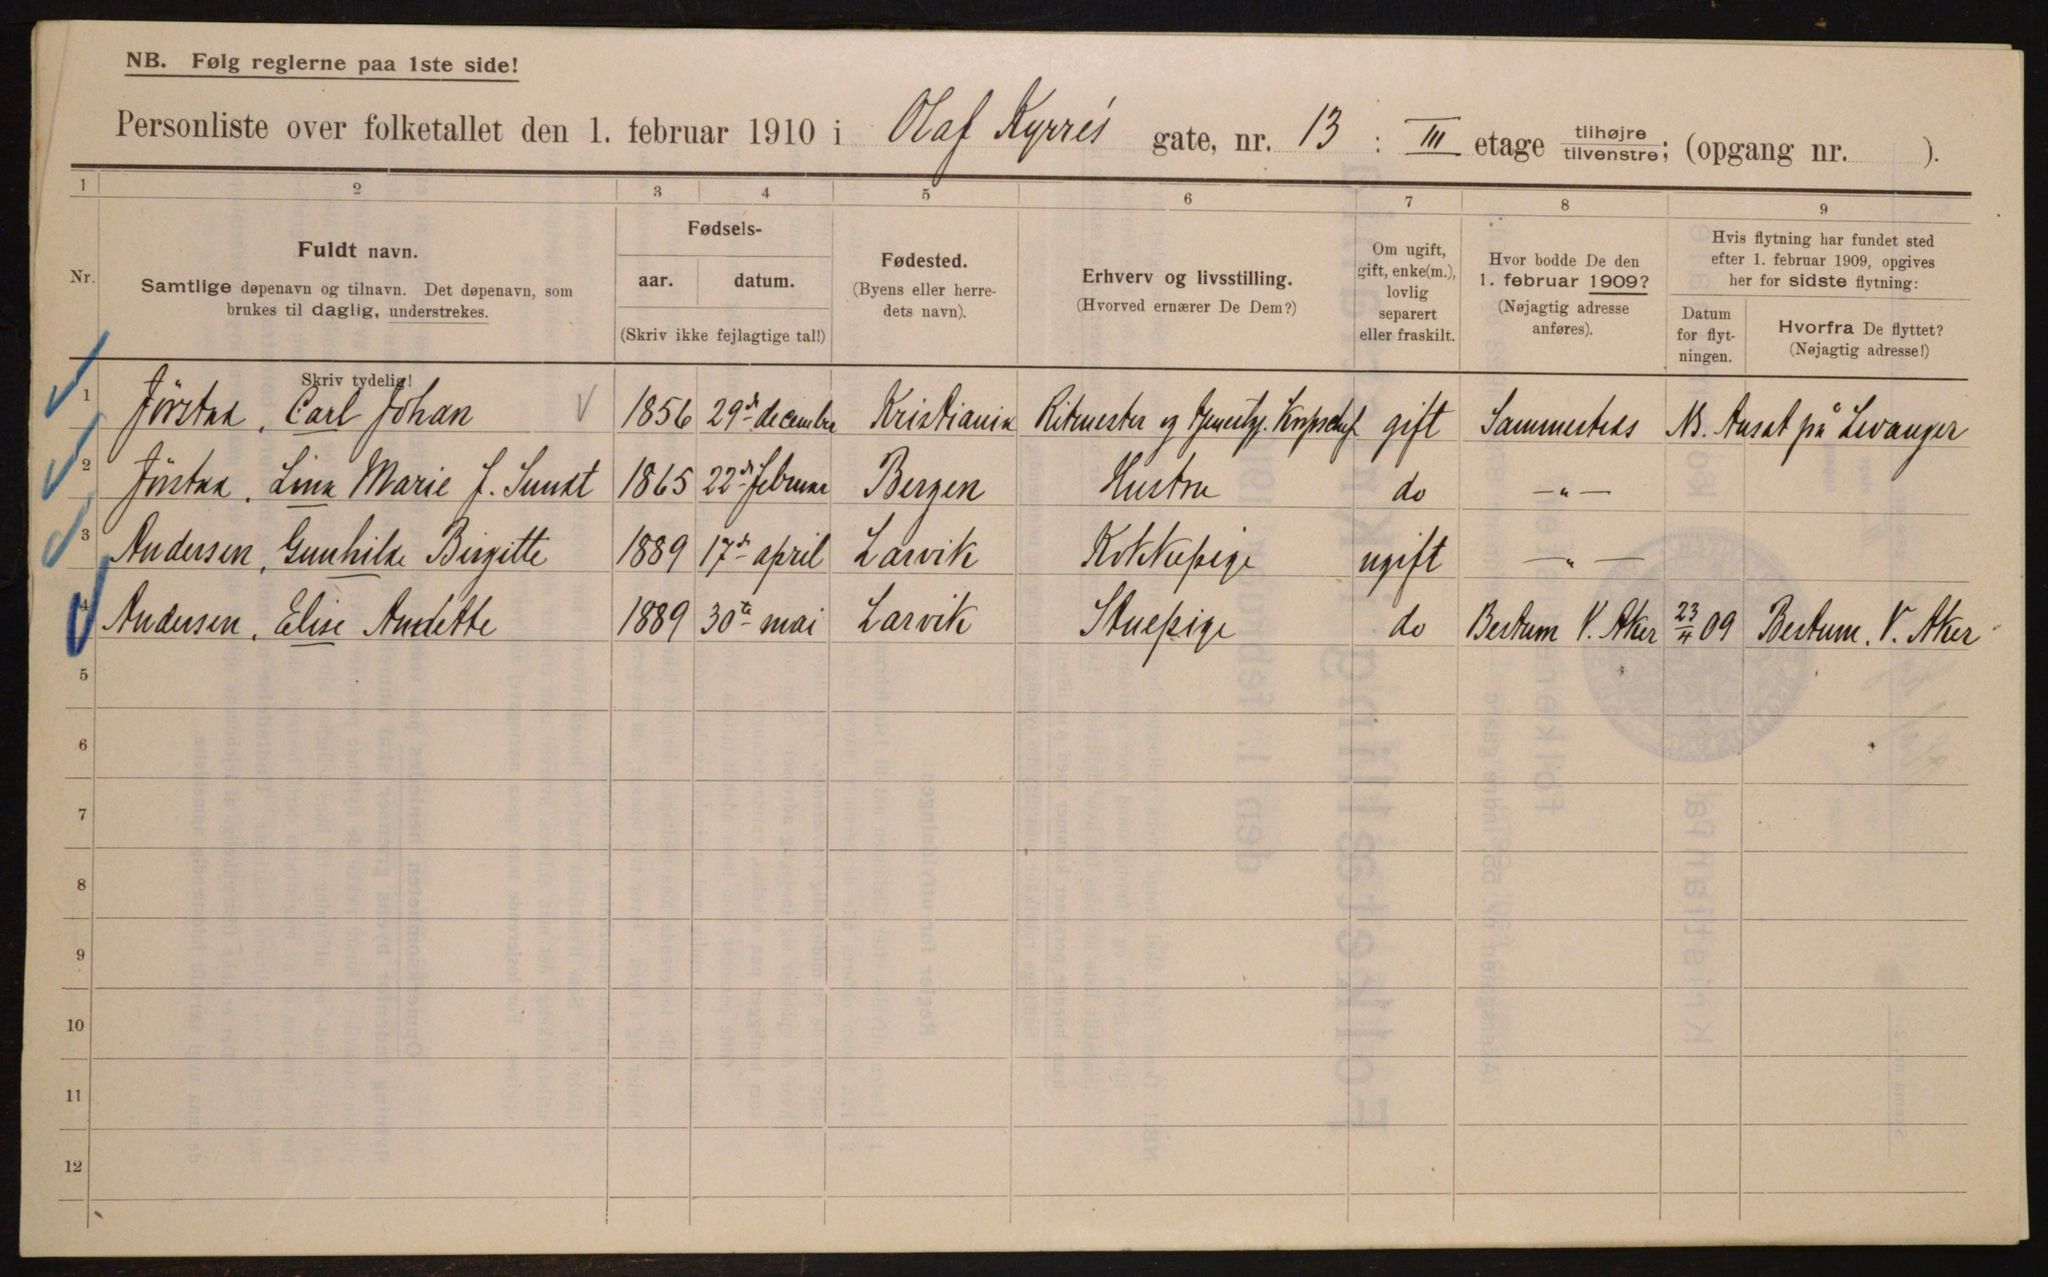 NB. Følg reglerne paa 1ste side!
Personliste over folketallet den 1. februar 1910 i Olaf Kyrrés gate, nr. 13 : III etage tilhøjre/tilvenstre; (opgang nr. ).
1 2 3 4 5 6 7 8 9
Nr.
Fuldt navn.
Samtlige døpenavn og tilnavn. Det døpenavn, som
brukes til daglig, understrekes.
Skriv tydelig!
Fødsels-
aar. datum.
(Skriv ikke fejlagtige tal!)
Fødested.
(Byens eller herre-
dets navn).
Erhverv og livsstilling.
(Hvorved ernærer De Dem?)
Om ugift,
gift, enke(m.),
lovlig
separert
eller fraskilt.
Hvor bodde De den
1. februar 1909?
(Nøjagtig adresse
anføres).
Hvis flytning har fundet sted
efter 1. februar 1909, opgives
her for sidste flytning:
Datum
for flyt-
ningen.
Hvorfra De flyttet?
(Nøjagtig adresse!)
1 Jörstad, Carl Johan 1856 29de december Kristiania Ritmester og gift Sammesteds NB. Ansat på Levanger
2 Jörstad, Lina Marie f. Sundt 1865 22de februar Bergen Hustru do —"—
3 Andersen, Gunhilde Birgitte 1889 17de april Larvik Kokkepige ugift —"—
4 Andersen, Elise Andette 1889 30te mai Larvik Stuepige do Bestum V. Aker 23/4 09 Bestum, V. Aker
5
6
7
8
9
10
11
12